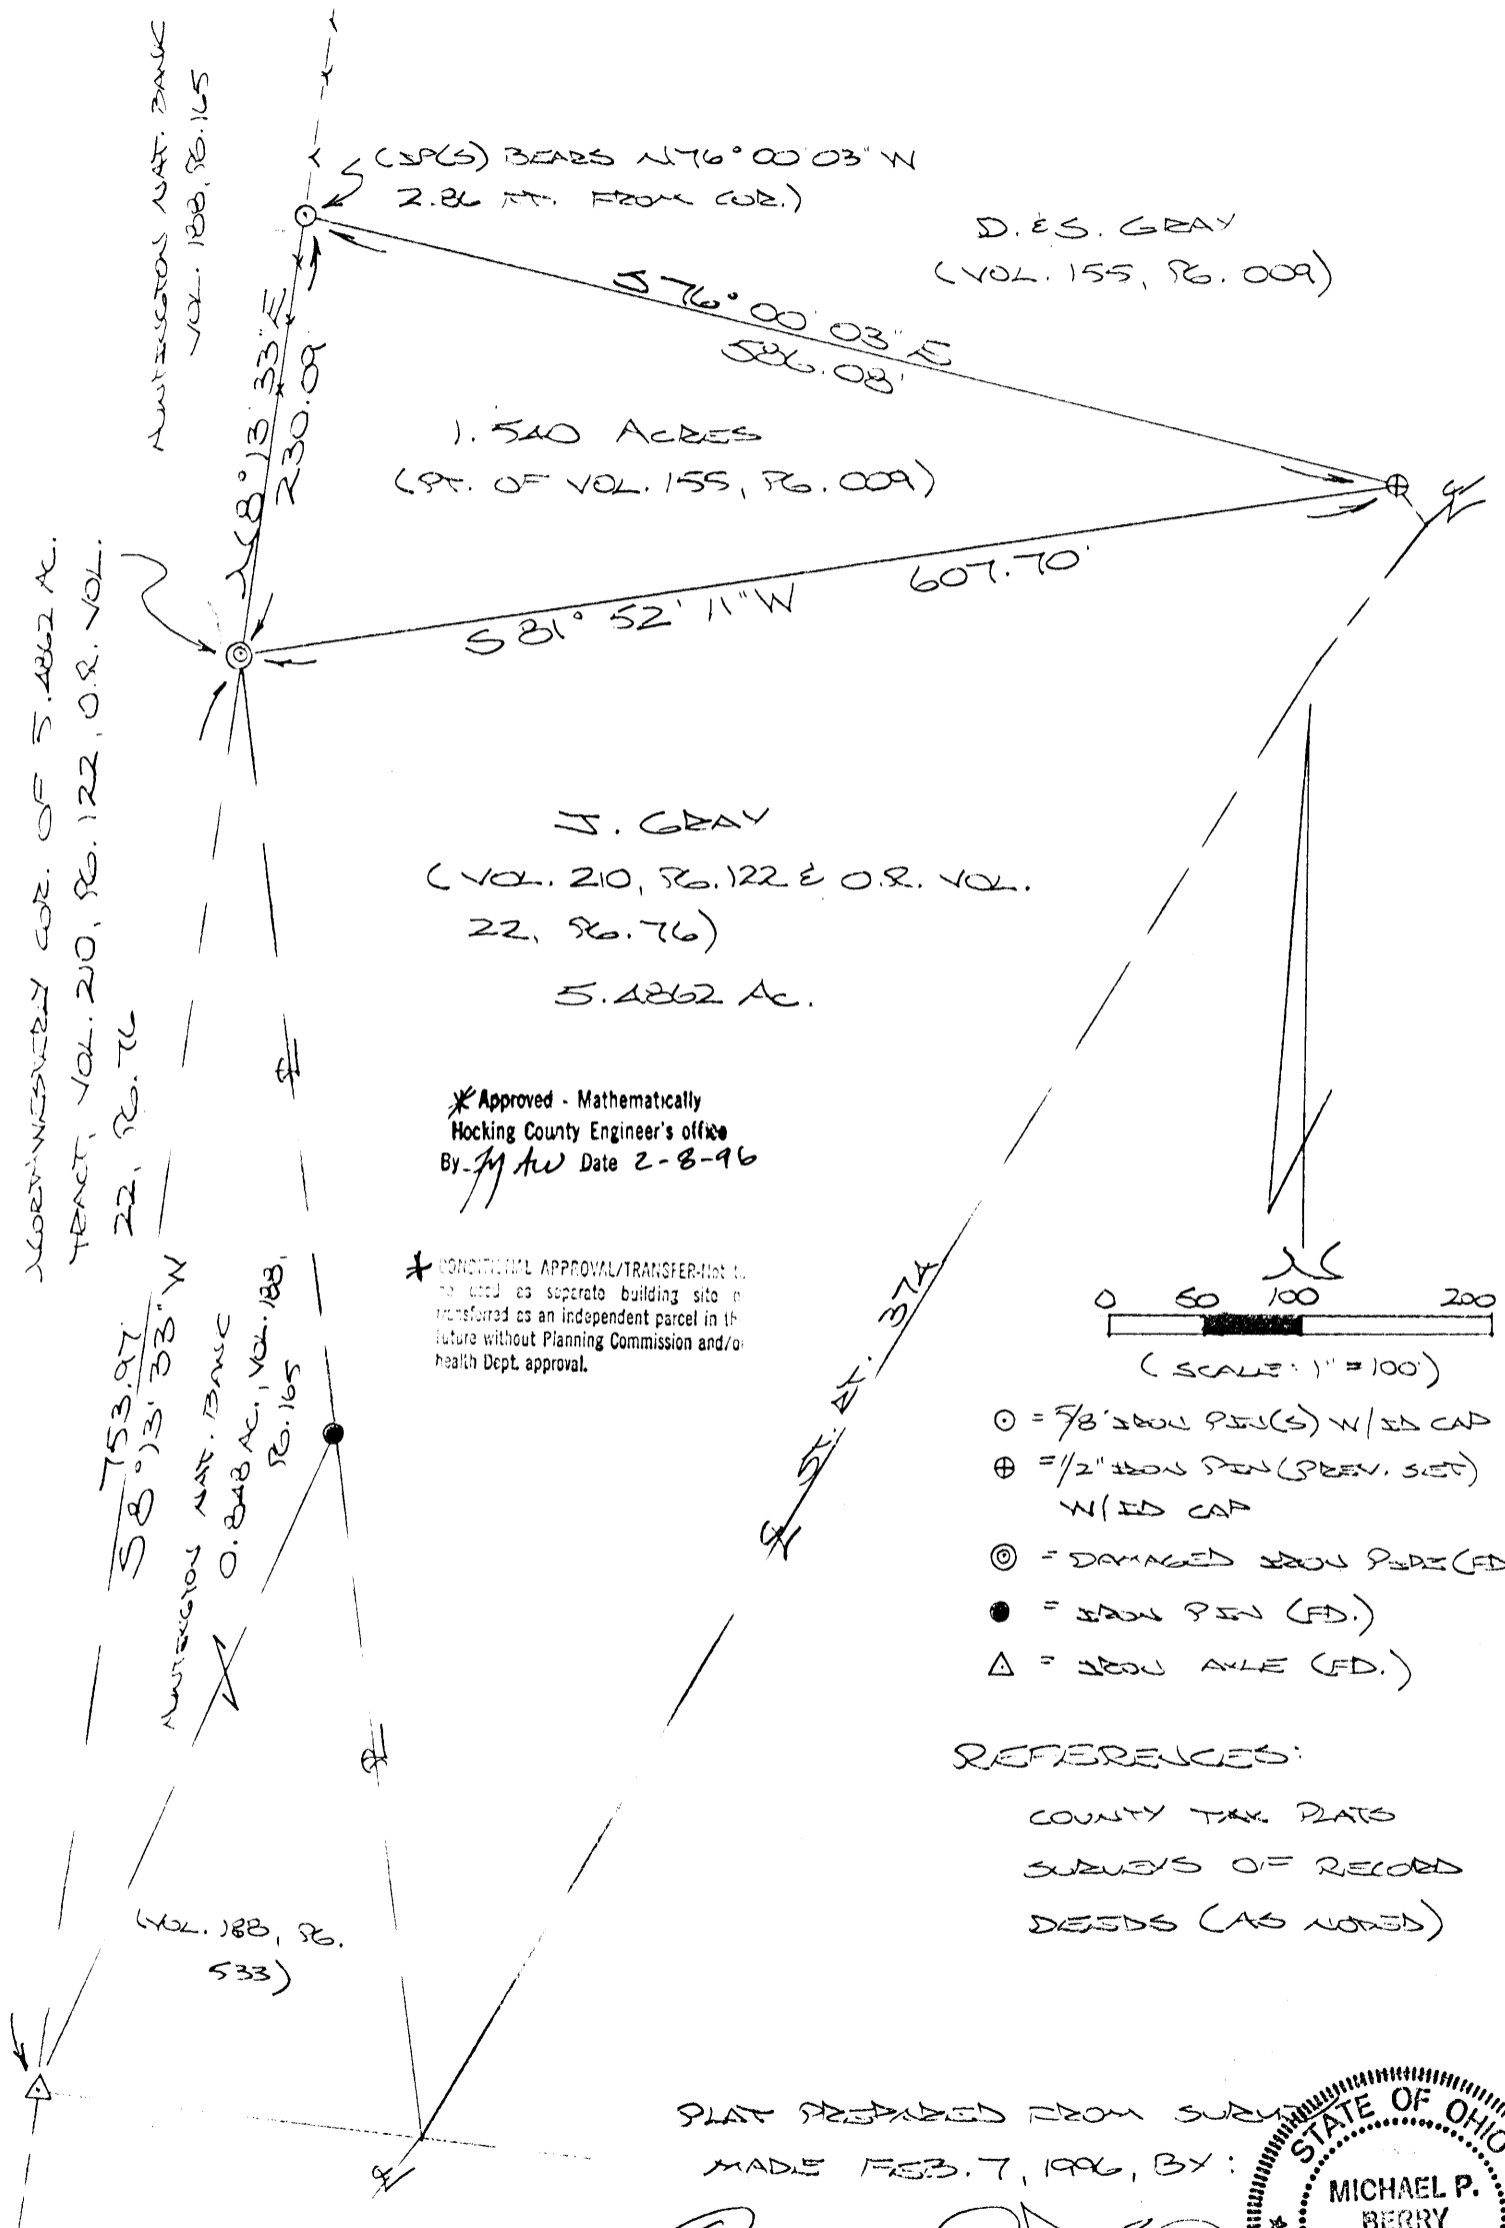 HUNTINGTON NAT. BANK
VOL. 188, PG. 165
(IP(S) BEARS N76°00'03"W
2.86 FT. FROM COR.)
D. & S. GRAY
(VOL. 155, PG. 009)
S 76° 00' 03" E
586.08'
N 8° 13' 33" E
230.09'
1.540 ACRES
(PT. OF VOL. 155, PG. 009)
607.70'
S 81° 52' 11" W
NORTHWESTERLY COR. OF 5.4862 AC.
TRACT, VOL. 210, PG. 122, O.R. VOL.
22, PG. 76
J. GRAY
(VOL. 210, PG. 122 & O.R. VOL.
22, PG. 76)
5.4862 AC.
* Approved - Mathematically
Hocking County Engineer's office
By Date 2-8-96
* CONDITIONAL APPROVAL/TRANSFER-Not
used as separate building site
transferred as an independent parcel in
future without Planning Commission and/o
health Dept. approval.
753.97'
S 8° 13' 33" W
HUNTINGTON NAT. BANK
0.848 AC., VOL. 188,
PG. 165
ST. RT. 374
N
0 50 100 200
(SCALE: 1" = 100')
⊙ = 5/8" IRON PIN(S) W/ID CAP
⊕ = 1/2" IRON PIN (PREV. SET)
W/ID CAP
◎ = DAMAGED IRON PIPE (FD
● = IRON PIN (FD.)
△ = IRON AXLE (FD.)
REFERENCES:
COUNTY TAX PLATS
SURVEYS OF RECORD
DEEDS (AS NOTED)
(VOL. 188, PG.
533)
PLAT PREPARED FROM SURVEY
MADE FEB. 7, 1996, BY:
STATE OF OHIO
MICHAEL P.
BERRY